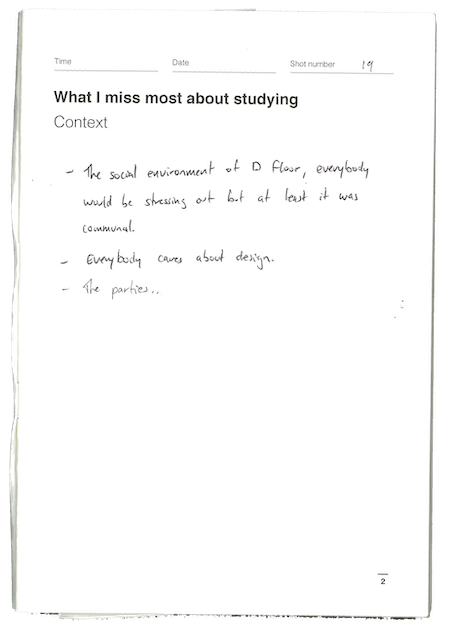 Time Date Shot number 19
What I miss most about studying
Context
- The social environment of D Floor, everybody
would be stressing out but at least it was
communal.
- Everybody cares about design.
- The parties..
2